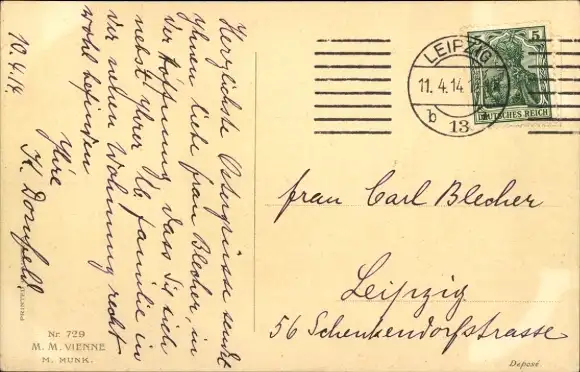 10.4.14.
Herzlichste Ostergrüsse sendet
Ihnen liebe Frau Blecher, in
der Hoffnung, dass Sie sich
nebst Ihrer lb. Familie in
der neuen Wohnung recht
wohl befinden
Ihre
K. Dornfeld.
LEIPZIG
11.4.14
b
13
5
DEUTSCHES REICH
Frau Carl Blecher
Leipzig
56 Schenkendorfstrasse
Nr. 729
M. M. VIENNE
M. MUNK.
Deposé